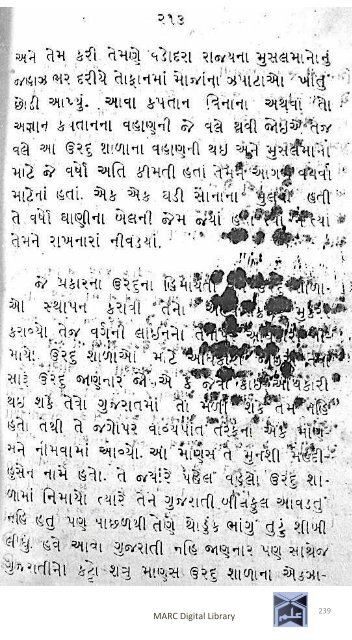 ૨૧૩
અને તેમ કરી તેમણે વડોદરા રાજ્યના મુસલમાનોનું
જહાઝ ભર દરીયે તોફાનમાં મોજાંના ઝપાટાઓ ખાતું
છોડી આપ્યું. આવા કપતાન વિનાના અથવા તો
અજ્ઞાન કપતાનના વહાણુની જે વલે થવી જોઇએ તેજ
વલે આ ઉરદુ શાળાના વહાણુની થઇ અને મુસલમાનો
માટે જે વર્ષો અતિ કીમતી હતાં તેમને આગળ વધવા
માટેનાં હતાં. એક એક ઘડી સોનાના મુલની હતી
તે વર્ષો ઘાણીના બેલની જેમ જ્યાં
તેમને રાખનારાં નીવડ્યાં.
જે પ્રકારના ઉરદુના હિમાયતી શાળા-
ઓ સ્થાપન કરાવી તેના
કરાવ્યો તેજ વર્ગની લાઇનનો
માયો. ઉરદુ શાળાઓ માટે
સારૂ ઉરદુ જાણુનાર જો એ કે જેવો કોઇ અધિકારી
થઇ શકે તેવો ગુજરાતમાં તો મળી શકે તેમ નહિ
હતો તેથી તે જગોપર વાયવ્યપ્રાંત તરફના એક માણુ-
સને નામવામાં આવ્યો. આ માણુસ તે મુનશી મહદી-
હુસેન નામે હતો. તે જ્યારે પહેલ વહેલો ઉરદુ શા-
ળામાં નિમાયો ત્યારે તેને ગુજરાતી બીલકુલ આવડતું
નહિ હતું પણ પાછળથી તેણે થોડુંક ભાંગું તુટું શીખી
લીધું. હવે આવા ગુજરાતી નહિ જાણુનાર પણ સાથેજ
ગુજરાતીનો કટ્ટો શત્રુ માણુસ ઉરદુ શાળાના એકઝા-
MARC Digital Library
239